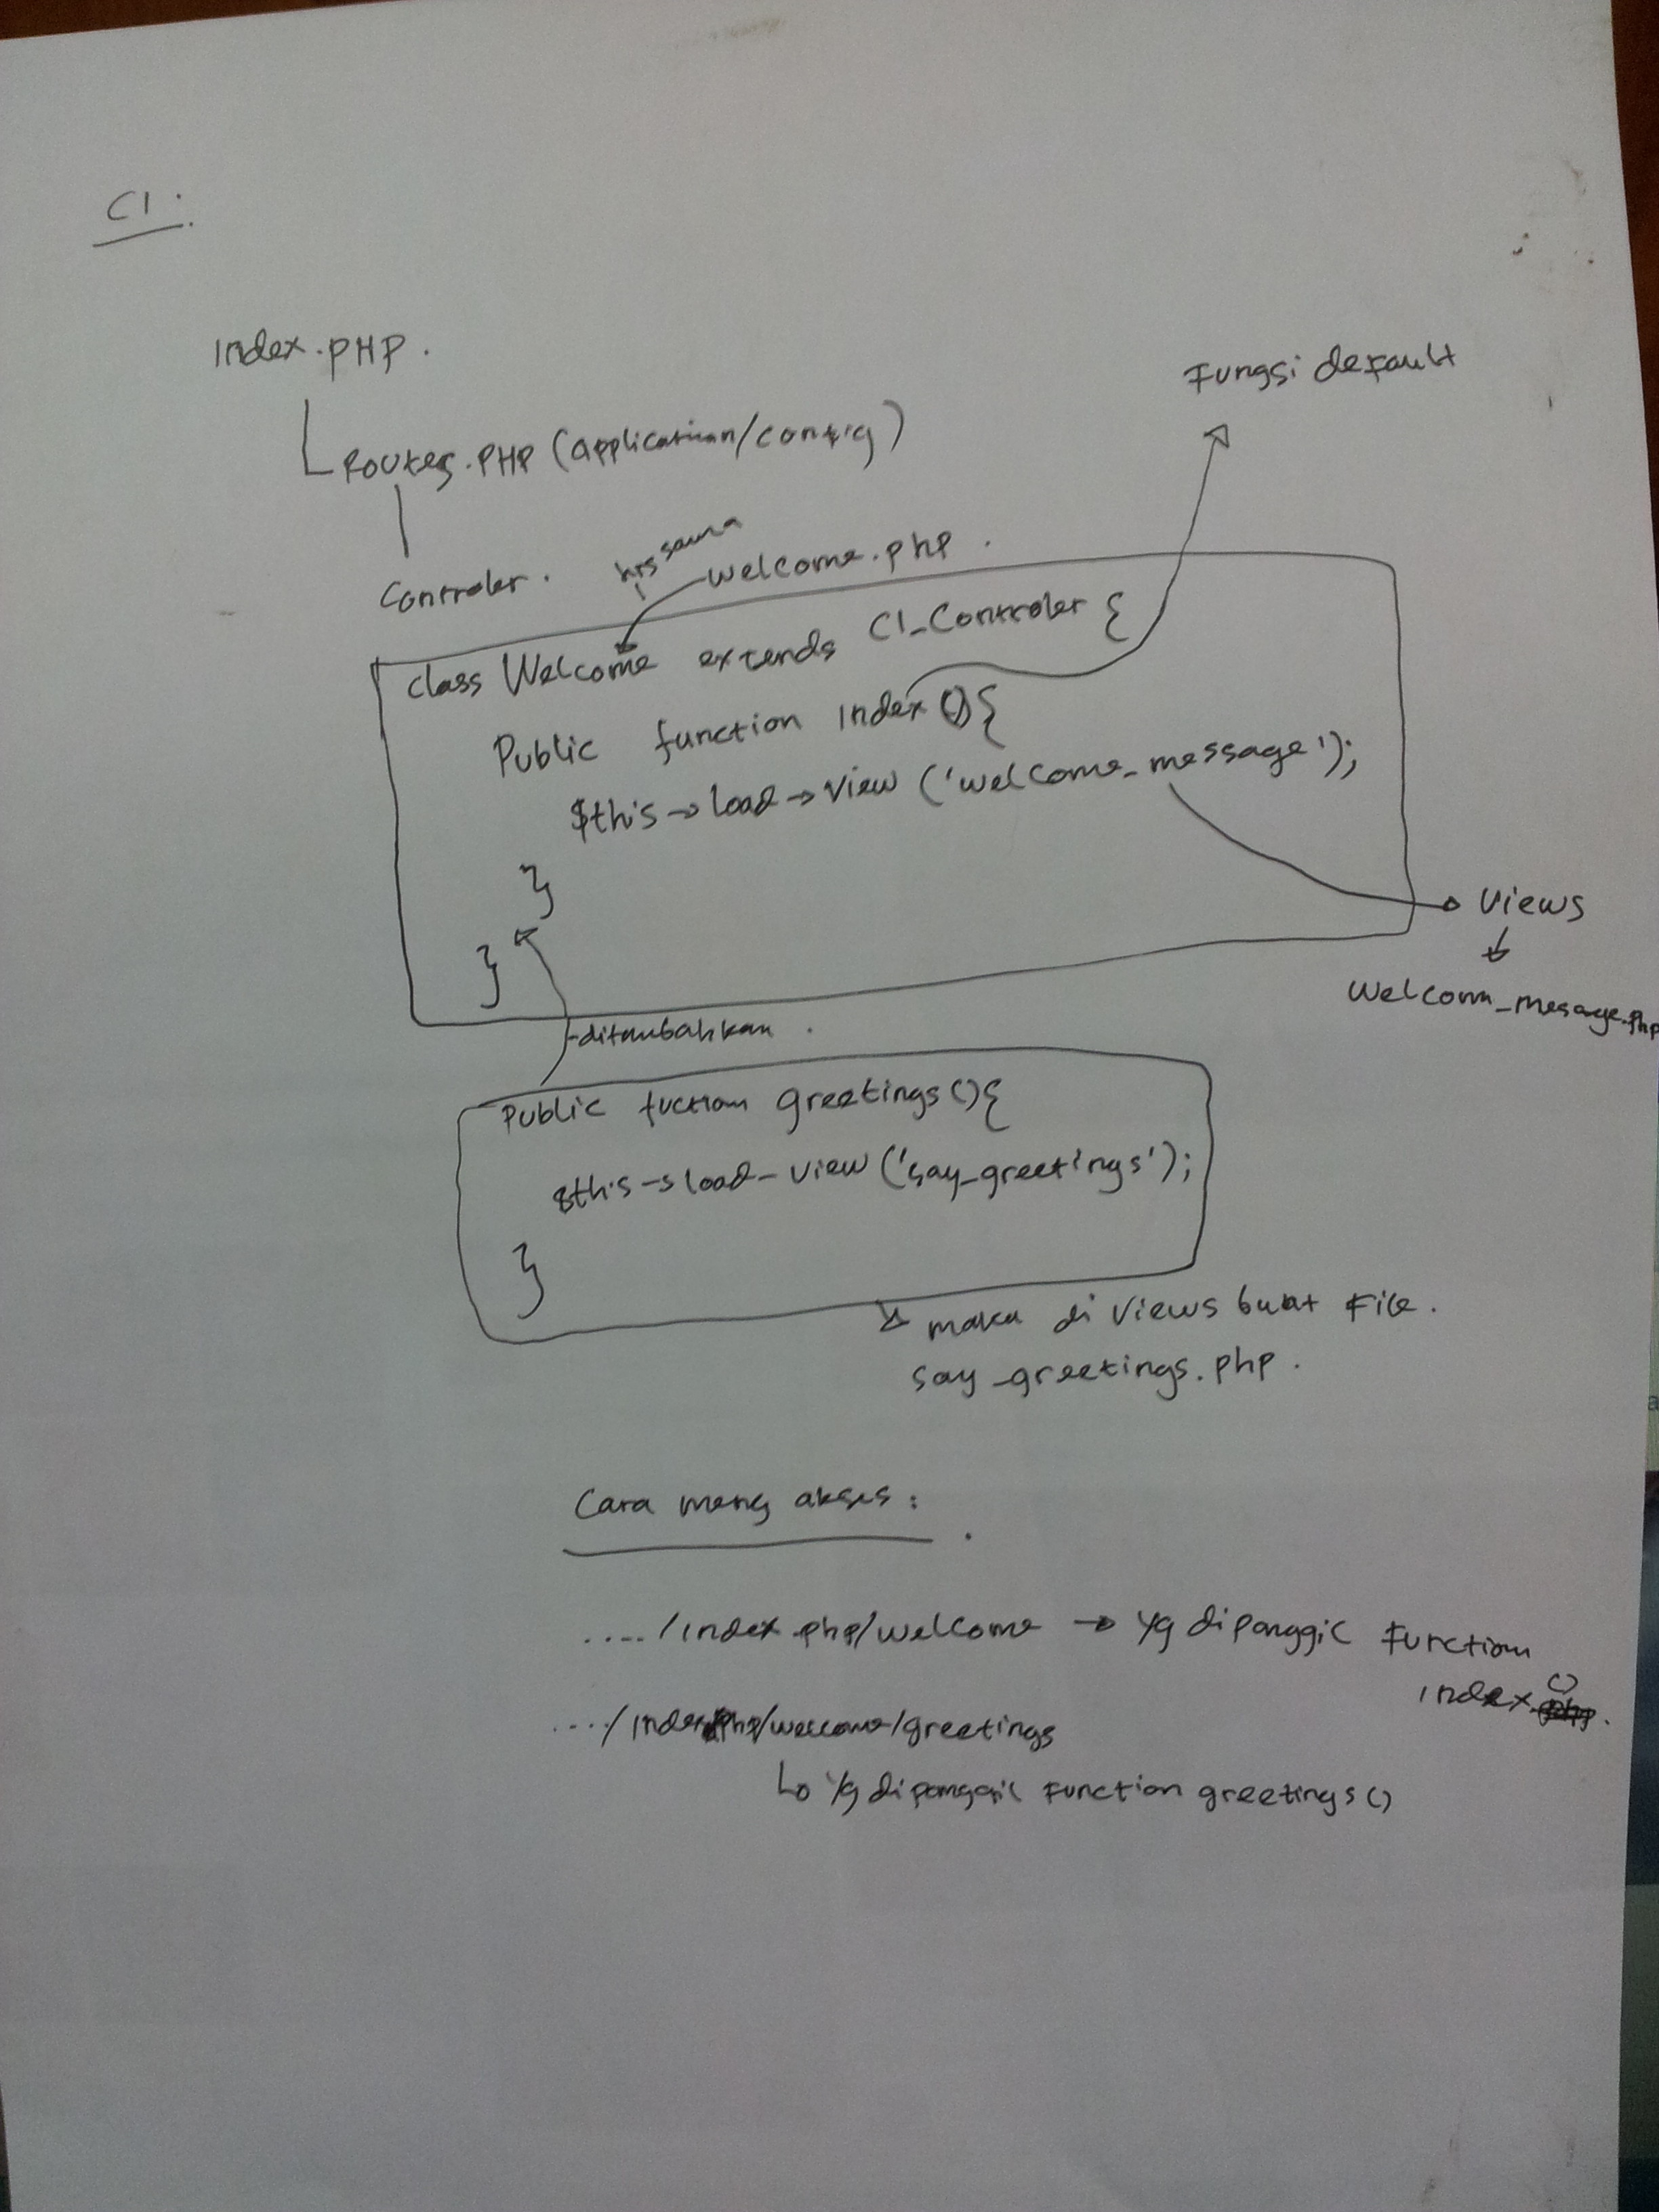 CI.
Index.PHP.
Routes.PHP (application/config)
Fungsi default
Controler.
hrs sama
welcome.php.
class Welcome extends CI_Controler {
Public function Index(){
$this→load→view ('welcome_message');
}
}
Views
Welcom_mesage.php
ditambahkan.
Public fuction greetings(){
$this→load-view ('say_greetings');
}
maka di views buat file.
say_greetings.php.
Cara meng akses:
..../index.php/welcome → yg dipanggil function
index ()
..../index.php/welcome/greetings
yg dipanggil function greetings()